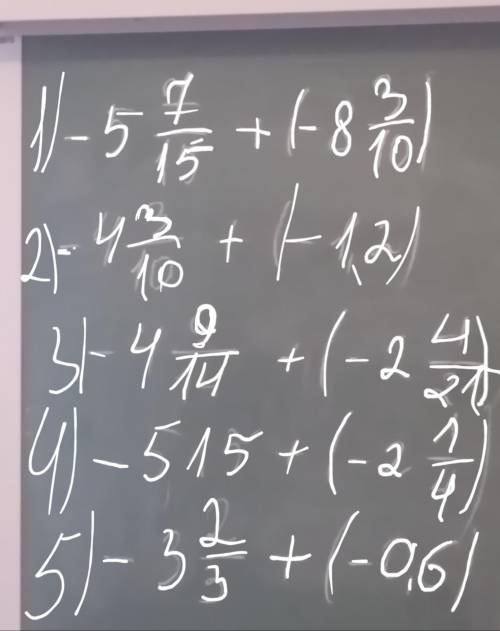 1) -5 7/15 + (-8 3/10)
2) -4 3/10 + (-1,2)
3) -4 9/14 + (-2 4/21)
4) -515 + (-2 1/4)
5) -3 2/3 + (-0,6)